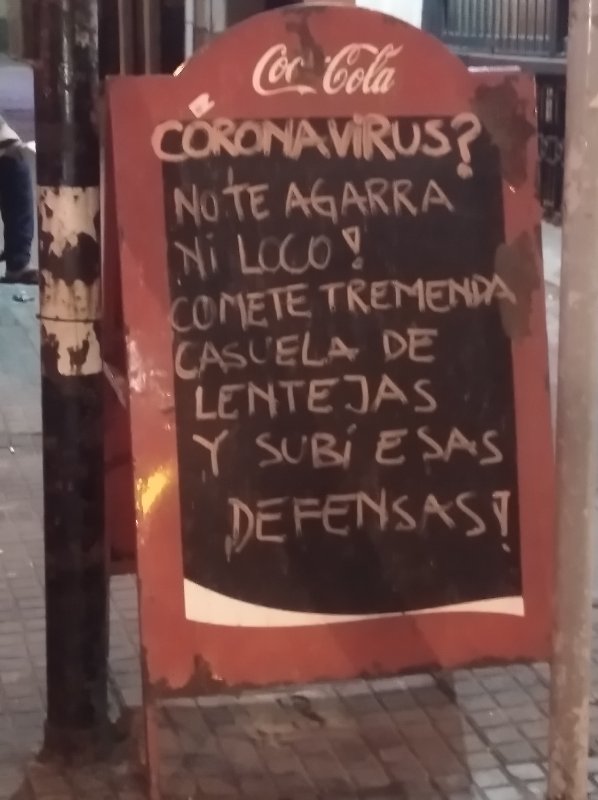 Coca-Cola
CORONAVIRUS?
NO TE AGARRA
NI LOCO!
COMETE TREMENDA
CASUELA DE
LENTEJAS
Y SUBÍ ESAS
¡DEFENSAS!